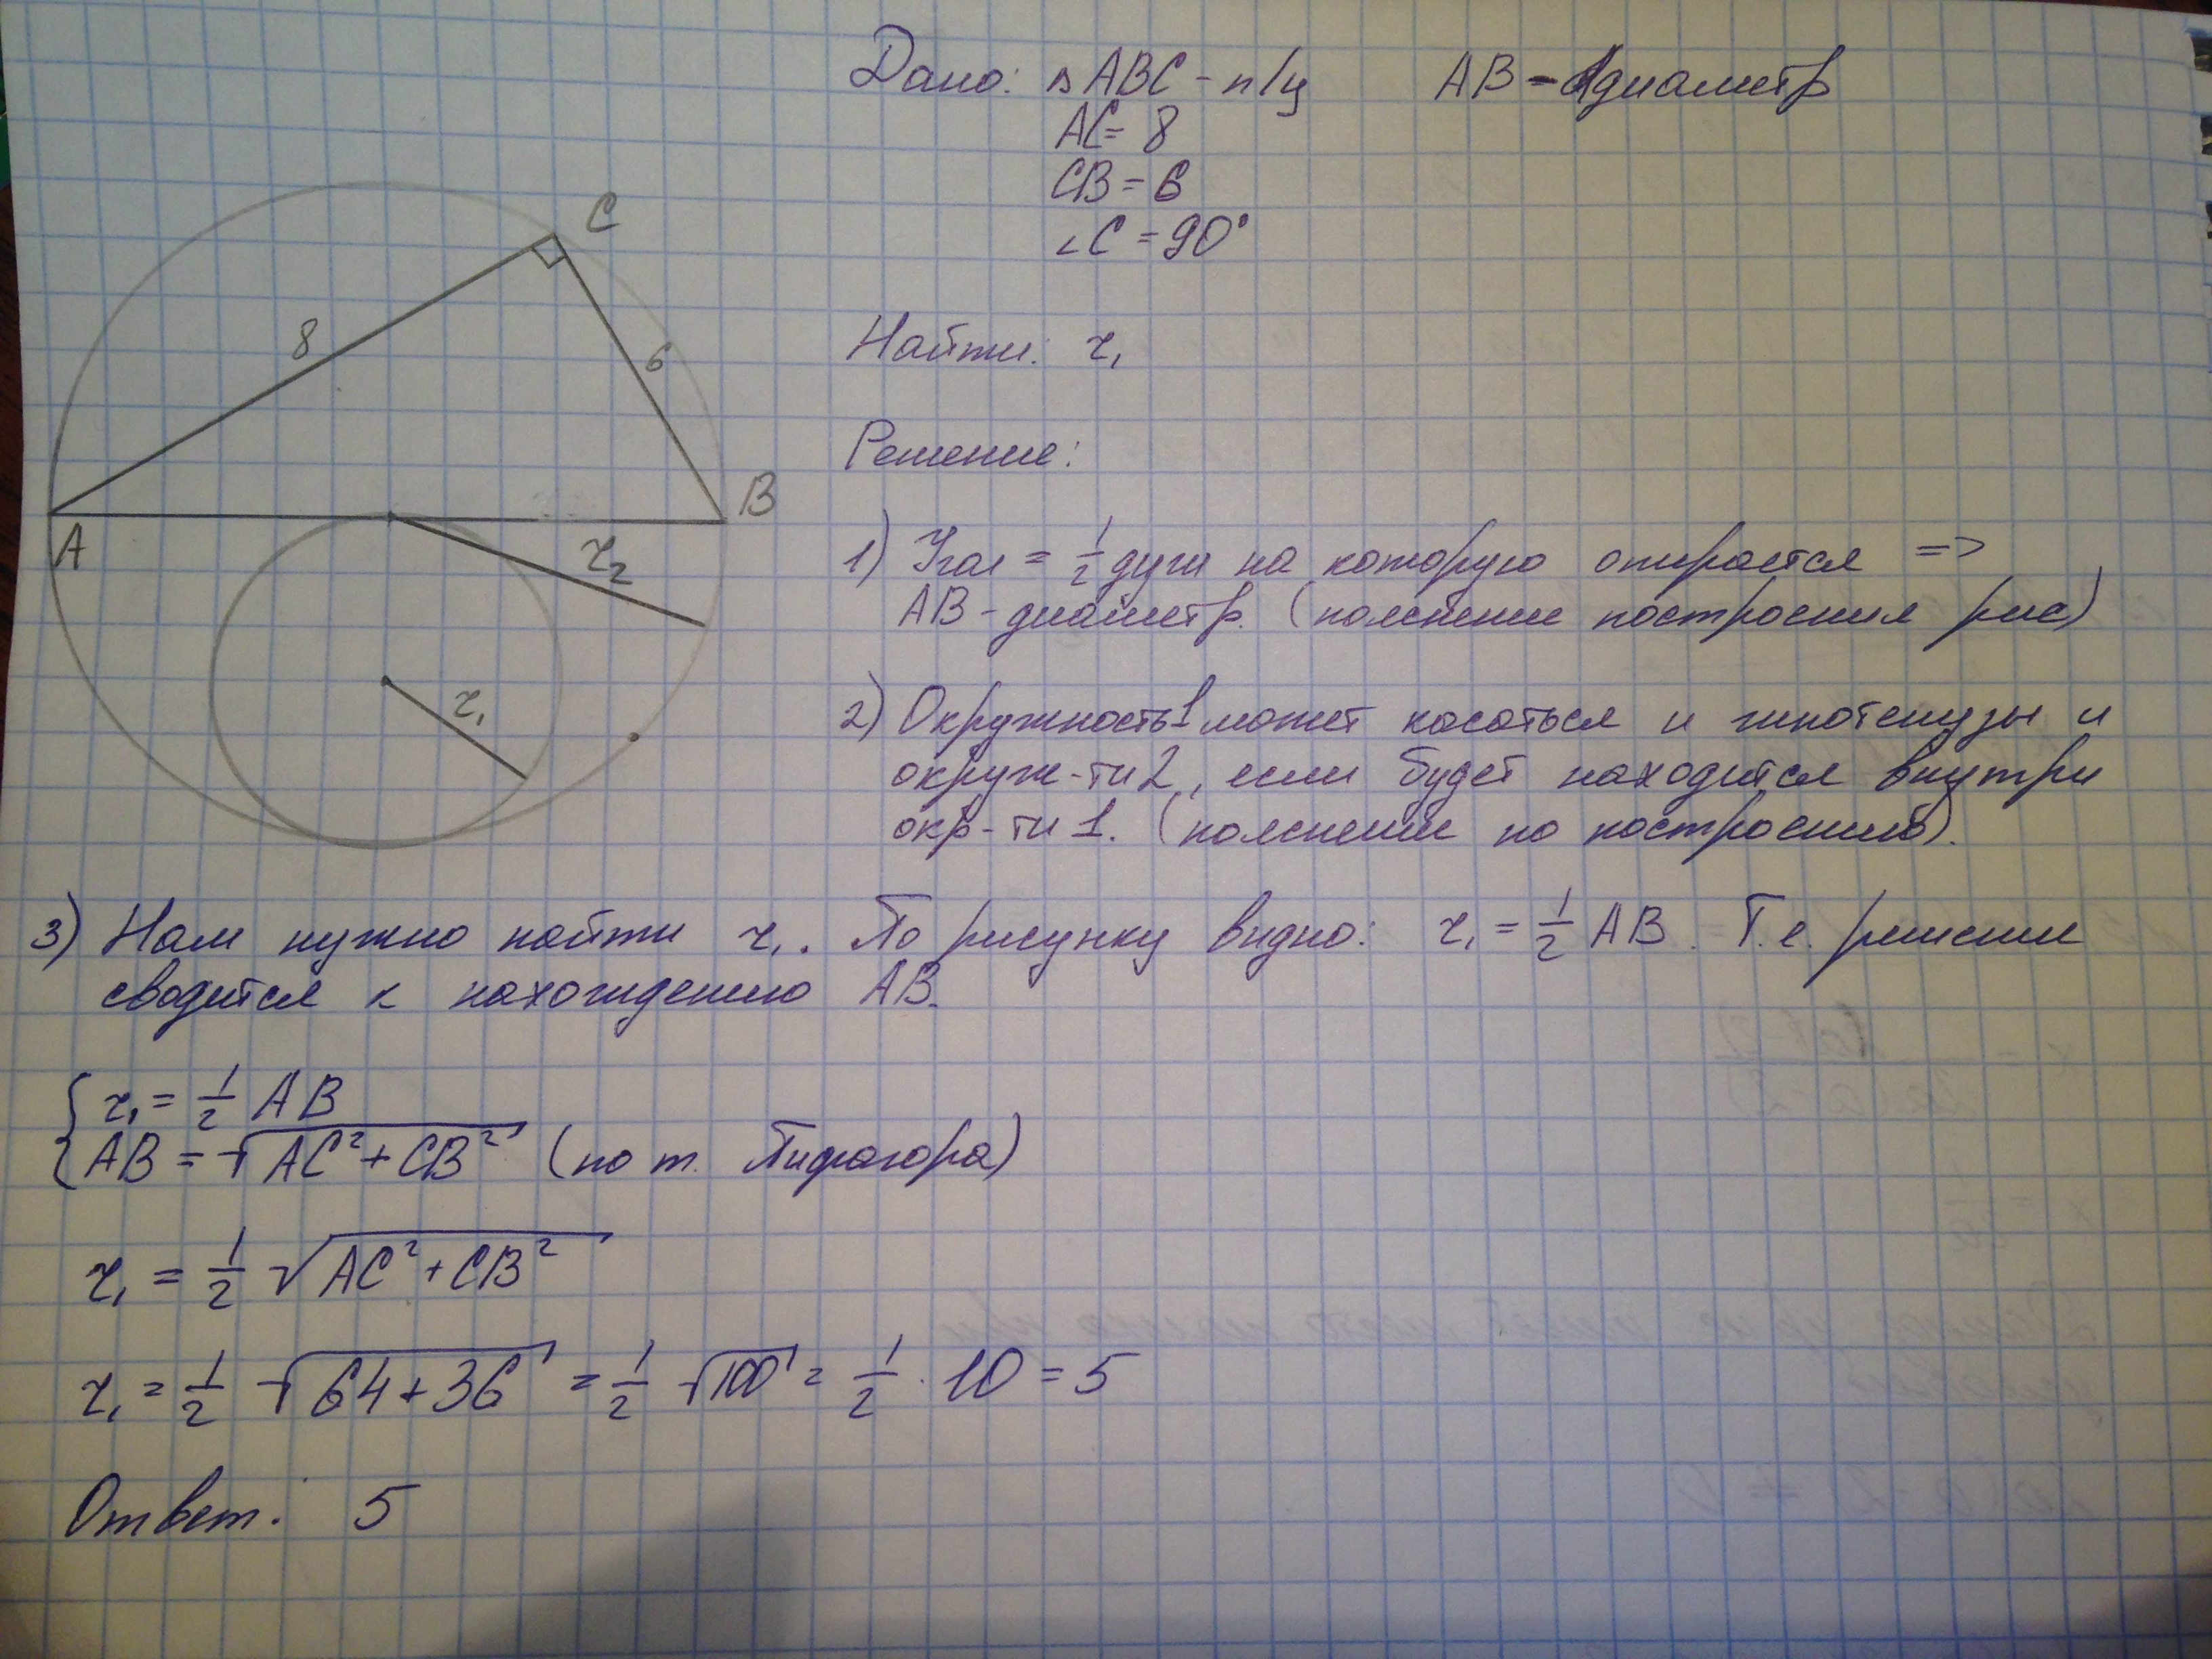 Дано: △ABC - п/у AB - диаметр
AC = 8
CB = 6
∠C = 90°
C
8
6
A
B
r₂
r₁
Найти: r₁
Решение:
1) Угол = 1/2 дуги на которую опирается =>
AB - диаметр. (пояснение построения рис)
2) Окружность 1 может касаться и гипотенузы и
окруж-ти 2, если будет находится внутри
окр-ти 1. (пояснение по построению).
3) Нам нужно найти r₁. По рисунку видно: r₁ = 1/2 AB. Т.е. решение
сводится к нахождению AB.
{ r₁ = 1/2 AB
AB = √AC² + CB² (по т. Пифагора)
r₁ = 1/2 √AC² + CB²
r₁ = 1/2 √64 + 36 = 1/2 √100 = 1/2 · 10 = 5
Ответ: 5